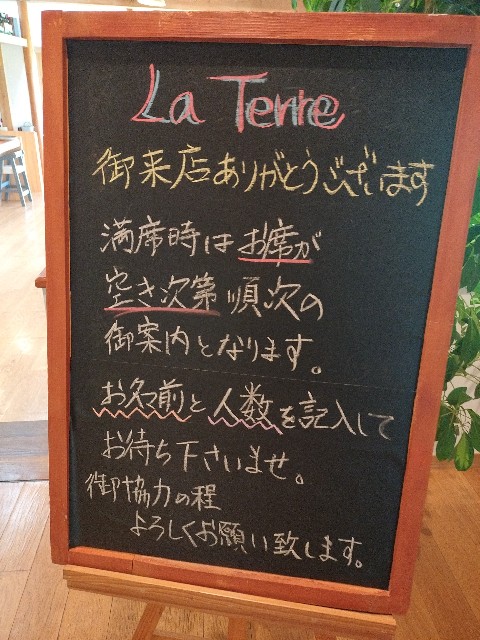 La Terre
御来店ありがとうございます
満席時はお席が
空き次第順次の
御案内となります。
お名前と人数を記入して
お待ち下さいませ。
御協力の程
よろしくお願い致します。